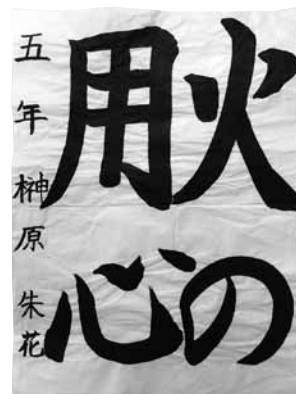 火の
用心
五年 榊原 朱花